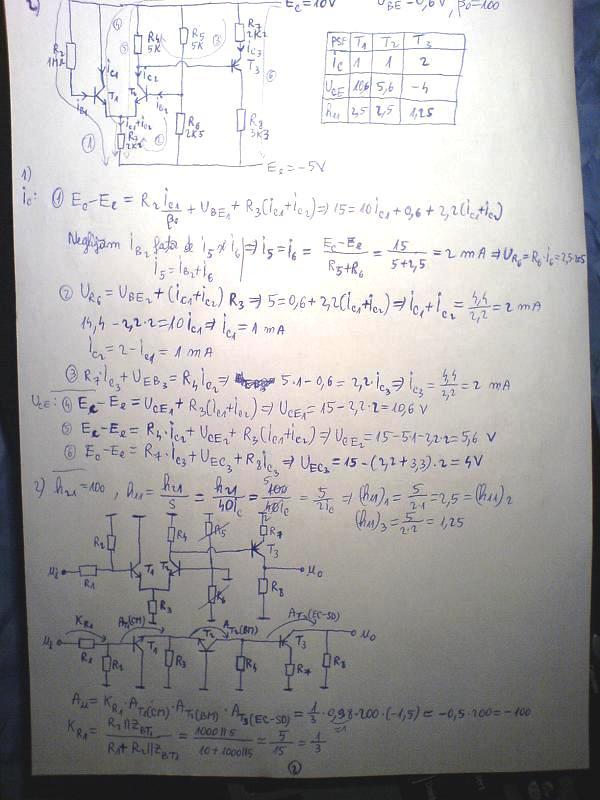 2)
Ec=10V
UBE=0,6V, β0=100
R2
1MΩ
R4
5K
R5
5K
R7
2K2
iC1
iC2
iC3
T1
T2
T3
iB1
iB2
iC1+iC2
R6
2K5
R8
3K3
2K2
Ee=-5V
PSF T1 T2 T3
iC 1 1 2
UCE 10,6 5,6 -4
h11 2,5 2,5 1,25
1)
iC: ① Ec-Ee = R2 iC1/β0 + UBE1 + R3(iC1+iC2) ⇒ 15=10iC1+0,6+2,2(iC1+iC2)
Neglijăm iB2 față de i5 și i6 ⇒ i5=i6= (Ec-Ee)/(R5+R6) = 15/(5+2,5) = 2 mA ⇒ UR6=R6·i6=2,5·2=5
i5=iB2+i6
② UR6=UBE2+(iC1+iC2) R3 ⇒ 5=0,6+2,2(iC1+iC2) ⇒ iC1+iC2= 4,4/2,2 = 2 mA
14,4-2,2·2=10iC1 ⇒ iC1=1 mA
iC2=2-iC1=1 mA
③ R7·iC3+UEB3=R4iC2 ⇒ 5·1-0,6=2,2·iC3 ⇒ iC3= 4,4/2,2 = 2 mA
UCE: ④ Ec-Ee=UCE1+R3(iC1+iC2) ⇒ UCE1=15-2,2·2=10,6 V
⑤ Ec-Ee=R4·iC2+UCE2+R3(iC1+iC2) ⇒ UCE2=15-5·1-2,2·2=5,6 V
⑥ Ec-Ee=R7·iC3+UEC3+R8iC3 ⇒ UEC3=15-(2,2+3,3)·2=4V
2) h21=100, h11= h21/S = h21/40iC = 100/40iC = 5/2iC ⇒ (h11)1= 5/2·1 =2,5=(h11)2
(h11)3= 5/2·2 =1,25
R2
R4
R5
R7
T3
ui
R1
T1
T2
R3
R6
R8
uo
KR1
AT1(CM)
AT2(BM)
AT3(EC-SD)
ui
R1
R2
T1
R3
T2
R4
T3
R7
R8
uo
Au=KR1·AT1(CM)·AT2(BM)·AT3(EC-SD)= 1/3·0,98·200·(-1,5) ≃ -0,5·200=-100
≃1
KR1= R2||ZBT1 / (R1+R2||ZBT1) = 1000||5 / (10+1000||5) ≃ 5/15 = 1/3
②